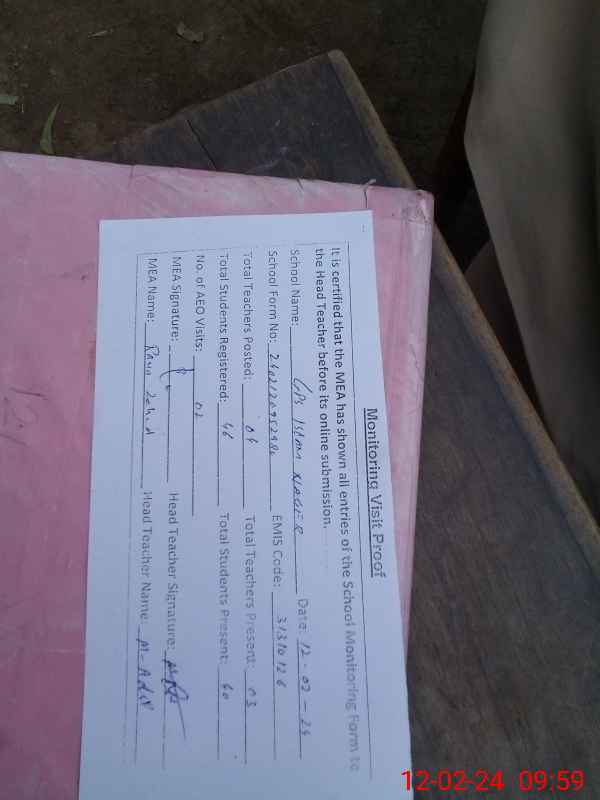 Monitoring Visit Proof
It is certified that the MEA has shown all entries of the School Monitoring Form to
the Head Teacher before its online submission.
School Name: GPS ISLAM NAGER Date: 12-02-24
School Form No: EMIS Code: 31310126
Total Teachers Posted: 04 Total Teachers Present: 03
Total Students Registered: 46 Total Students Present: 40
No. of AEO Visits: 02
MEA Signature: Head Teacher Signature:
MEA Name: Rana Zahid Head Teacher Name:
12-02-24 09:59